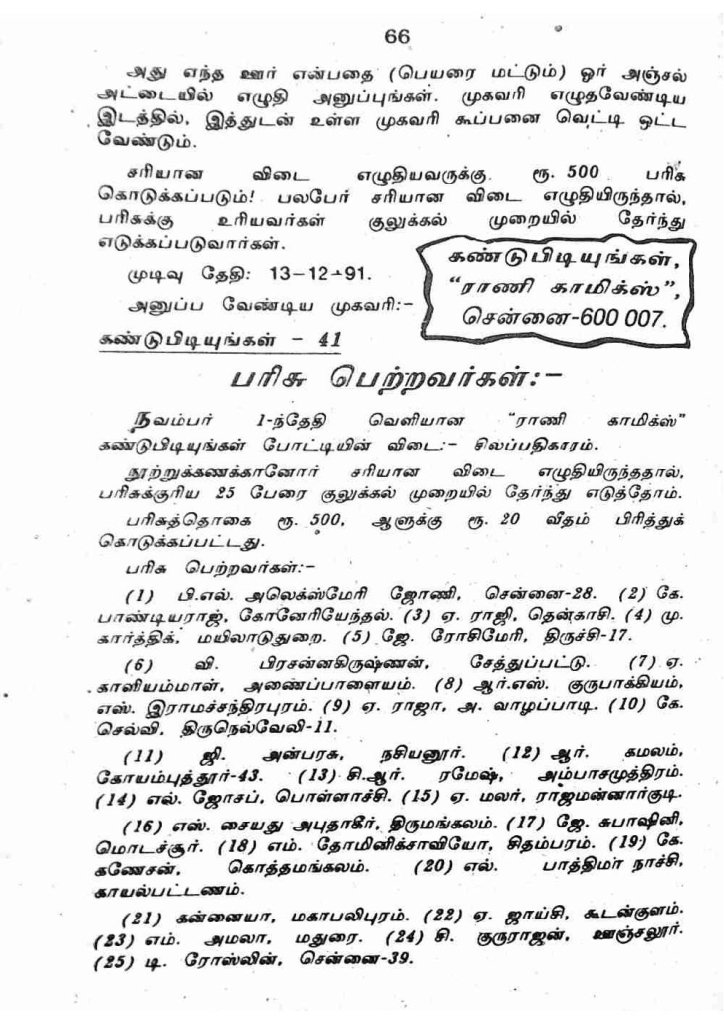 66
அது எந்த ஊர் என்பதை (பெயரை மட்டும்) ஓர் அஞ்சல்
அட்டையில் எழுதி அனுப்புங்கள். முகவரி எழுதவேண்டிய
இடத்தில், இத்துடன் உள்ள முகவரி கூப்பனை வெட்டி ஒட்ட
வேண்டும்.
சரியான விடை எழுதியவருக்கு ரூ. 500 பரிசு
கொடுக்கப்படும்! பலபேர் சரியான விடை எழுதியிருந்தால்,
பரிசுக்கு உரியவர்கள் குலுக்கல் முறையில் தேர்ந்து
எடுக்கப்படுவார்கள்.
முடிவு தேதி: 13-12-91.
அனுப்ப வேண்டிய முகவரி:-
கண்டுபிடியுங்கள்,
“ராணி காமிக்ஸ்”,
சென்னை-600 007.
கண்டுபிடியுங்கள் - 41
பரிசு பெற்றவர்கள்:-
நவம்பர் 1-ந்தேதி வெளியான “ராணி காமிக்ஸ்”
கண்டுபிடியுங்கள் போட்டியின் விடை:- சிலப்பதிகாரம்.
நூற்றுக்கணக்கானோர் சரியான விடை எழுதியிருந்ததால்,
பரிசுக்குரிய 25 பேரை குலுக்கல் முறையில் தேர்ந்து எடுத்தோம்.
பரிசுத்தொகை ரூ. 500, ஆளுக்கு ரூ. 20 வீதம் பிரித்துக்
கொடுக்கப்பட்டது.
பரிசு பெற்றவர்கள்:-
(1) பி.எல். அலெக்ஸ்மேரி ஜோணி, சென்னை-28. (2) கே.
பாண்டியராஜ், கோனேரியேந்தல். (3) ஏ. ராஜி, தென்காசி. (4) மு.
கார்த்திக், மயிலாடுதுறை. (5) ஜே. ரோசிமேரி, திருச்சி-17.
(6) வி. பிரசன்னகிருஷ்ணன், சேத்துப்பட்டு. (7) ஏ.
காளியம்மாள், அணைப்பாளையம். (8) ஆர்.எஸ். குருபாக்கியம்,
எஸ். இராமச்சந்திரபுரம். (9) ஏ. ராஜா, அ. வாழப்பாடி. (10) கே.
செல்வி, திருநெல்வேலி-11.
(11) ஜி. அன்பரசு, நசியனூர். (12) ஆர். கமலம்,
கோயம்புத்தூர்-43. (13) சி.ஆர். ரமேஷ், அம்பாசமுத்திரம்.
(14) எல். ஜோசப், பொள்ளாச்சி. (15) ஏ. மலர், ராஜமன்னார்குடி.
(16) எஸ். சையது அபுதாகீர், திருமங்கலம். (17) ஜே. சுபாஷினி,
மொடச்சூர். (18) எம். தோமினிக்சாவியோ, சிதம்பரம். (19) கே.
கணேசன், கொத்தமங்கலம். (20) எல். பாத்திமா நாச்சி,
காயல்பட்டணம்.
(21) கன்னையா, மகாபலிபுரம். (22) ஏ. ஜாய்சி, கூடன்குளம்.
(23) எம். அமலா, மதுரை. (24) சி. குருராஜன், ஊஞ்சலூர்.
(25) டி. ரோஸ்லின், சென்னை-39.